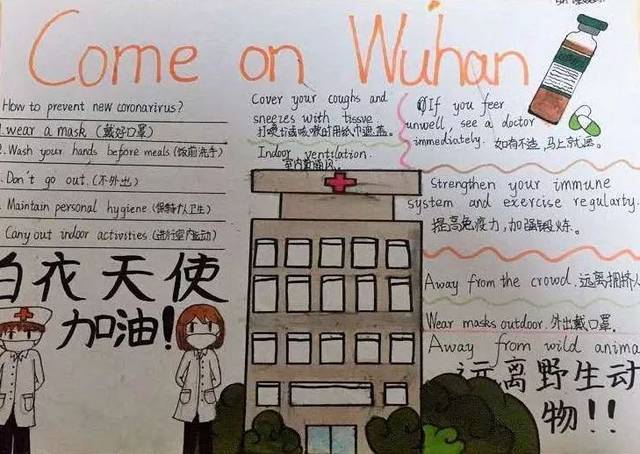 Come on Wuhan
How to prevent new coronarirus?
1.wear a mask (戴好口罩)
2.Wash your hands before meals (饭前洗手)
. Don't go out. (不外出)
. Maintain personal hygiene (保持个人卫生)
. Carry out indoor activities (进行室内运动)
白衣天使
加油!
Cover your coughs and
sneezes with tissve
打喷嚏咳嗽时用纸巾遮盖.
Indoor ventilation.
室内勤通风.
If you feer
unwell, see a doctor
immediately. 如有不适,马上就医.
Strengthen your immune
system and exercise regularty.
提高免疫力,加强锻炼.
Away from the crowd. 远离拥挤人
Wear masks outdoor. 外出戴口罩.
Away from wild anima
远离野生动
物!!